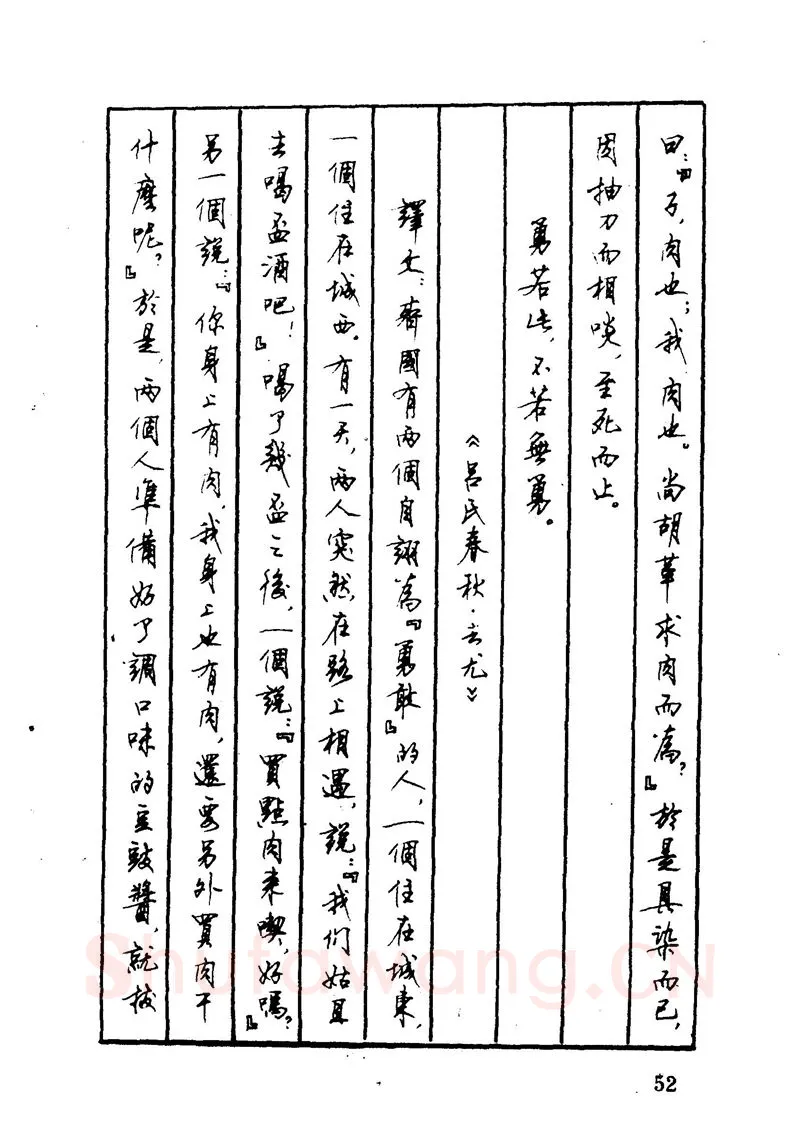 曰：『子，肉也；我，肉也。尚胡革求肉而為？』於是具染而已，
因抽刀而相啖，至死而止。
勇若此，不若無勇。
《呂氏春秋·去尤》
譯文：齊國有兩個自詡為『勇敢』的人，一個住在城東，
一個住在城西。有一天，兩人突然在路上相遇，說：『我们姑且
去喝盃酒吧！』喝了幾盃之後，一個說：『買點肉來喫，好嗎？』
另一個說：『你身上有肉，我身上也有肉，還要另外買肉干
什麼呢？』於是，兩個人準備好了調口味的豆豉醬，就拔
52
Shufawang.CN